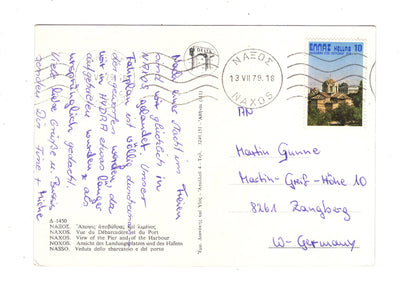 Nach einer Nacht im Freien
sind wir glücklich in
NAXOS gelandet. Unser
Fahrplan ist völlig durcheinander
geworden, da
wir in HYDRA etwas länger
aufgehalten wurden als
ursprünglich gedacht.
Viele liebe Grüße u. Bussis
senden Dir Tine +
ΔELTA
ΝΑΞΟΣ
13 VII 79. 18
NAXOS
ΕΛΛΑΣ HELLAS 10
AN
Martin Gunne
Martin-Greif-Höhe 10
8261 Zangberg
W-Germany
Δ-1450
ΝΑΞΟΣ. Ἄποψις ἀποβάθρας καὶ λιμένος
NAXOS. Vue du Débarcadère et du Port
NAXOS. View of the Pier and of the Harbour
NAXOS. Ansicht des Landungsplatzes und des Hafens
NASSO. Veduta dello sbarcatoio e del porto